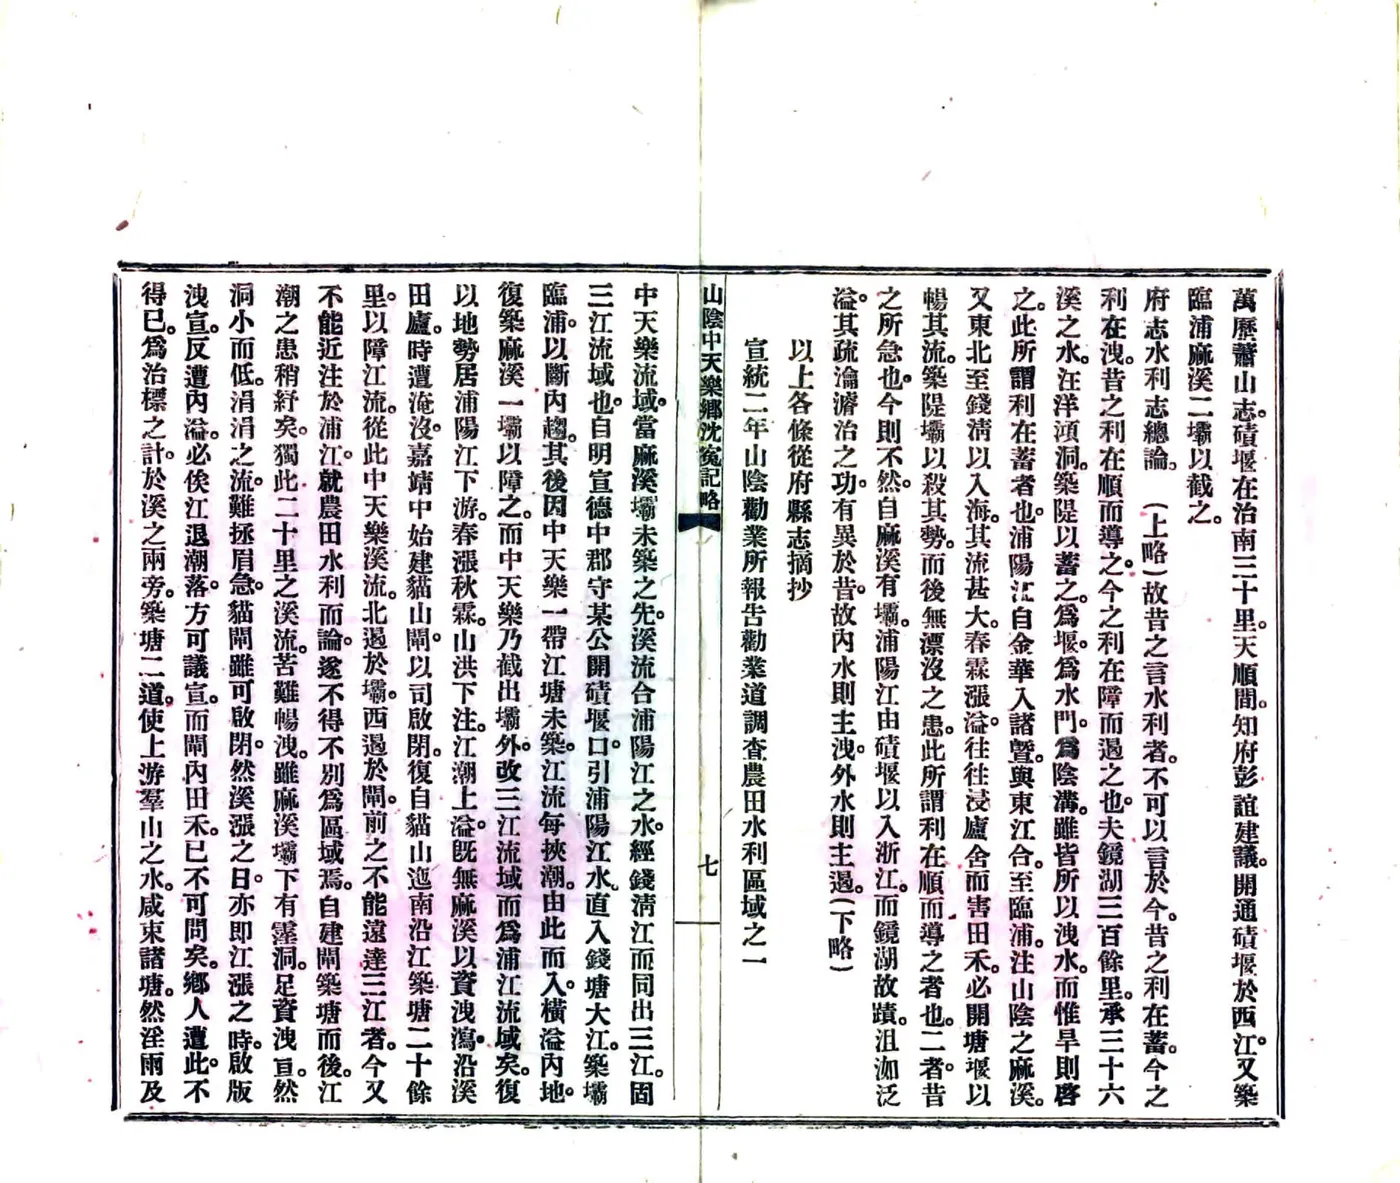 萬歷蕭山志。磧堰在治南三十里。天順間。知府彭誼建議。開通磧堰於西江。又築
臨浦麻溪二壩以截之。
府志水利志總論。（上略）故昔之言水利者。不可以言於今。昔之利在蓄。今之
利在洩。昔之利在順而導之。今之利在障而遏之也。夫鏡湖三百餘里。承三十六
溪之水。汪洋澒洞。築隄以蓄之。爲堰。爲水門。爲陰溝。雖皆所以洩水。而惟旱則啓
之。此所謂利在蓄者也。浦陽江自金華入諸暨。與東江合。至臨浦。注山陰之麻溪。
又東北至錢淸以入海。其流甚大。春霖漲溢。往往浸廬舍而害田禾。必開塘堰以
暢其流。築隄壩以殺其勢。而後無漂沒之患。此所謂利在順而導之者也。二者。昔
之所急也。今則不然。自麻溪有壩。浦陽江由磧堰以入浙江。而鏡湖故蹟。沮洳泛
溢。其疏瀹濬治之功。有異於昔。故內水則主洩。外水則主遏。（下略）
以上各條從府縣志摘抄
宣統二年山陰勸業所報告勸業道調查農田水利區域之一
山陰中天樂鄉沈寃記略
七
中天樂流域。當麻溪壩未築之先。溪流合浦陽江之水。經錢淸江而同出三江。固
三江流域也。自明宣德中郡守某公開磧堰口。引浦陽江水。直入錢塘大江。築壩
臨浦。以斷內趨。其後因中天樂一帶江塘未築。江流每挾潮。由此而入。橫溢內地。
復築麻溪一壩以障之。而中天樂乃截出壩外。改三江流域而爲浦江流域矣。復
以地勢居浦陽江下游。春漲秋霖。山洪下注。江潮上溢。旣無麻溪以資洩瀉。沿溪
田廬。時遭淹沒。嘉靖中始建貓山閘。以司啟閉。復自貓山迤南沿江築塘二十餘
里。以障江流。從此中天樂溪流。北遏於壩。西遏於閘。前之不能遠達三江者。今又
不能近注於浦江。就農田水利而論。遂不得不別爲區域焉。自建閘築塘而後。江
潮之患稍紓矣。獨此二十里之溪流。苦難暢洩。雖麻溪壩下有霪洞。足資洩宣。然
洞小而低。涓涓之流。難拯眉急。貓閘雖可啟閉。然溪漲之日。亦即江漲之時。啟版
洩宣。反遭內溢。必俟江退潮落。方可議宣。而閘內田禾。已不可問矣。鄉人遭此。不
得已。爲治標之計。於溪之兩旁。築塘二道。使上游羣山之水。咸束諸塘。然淫雨及